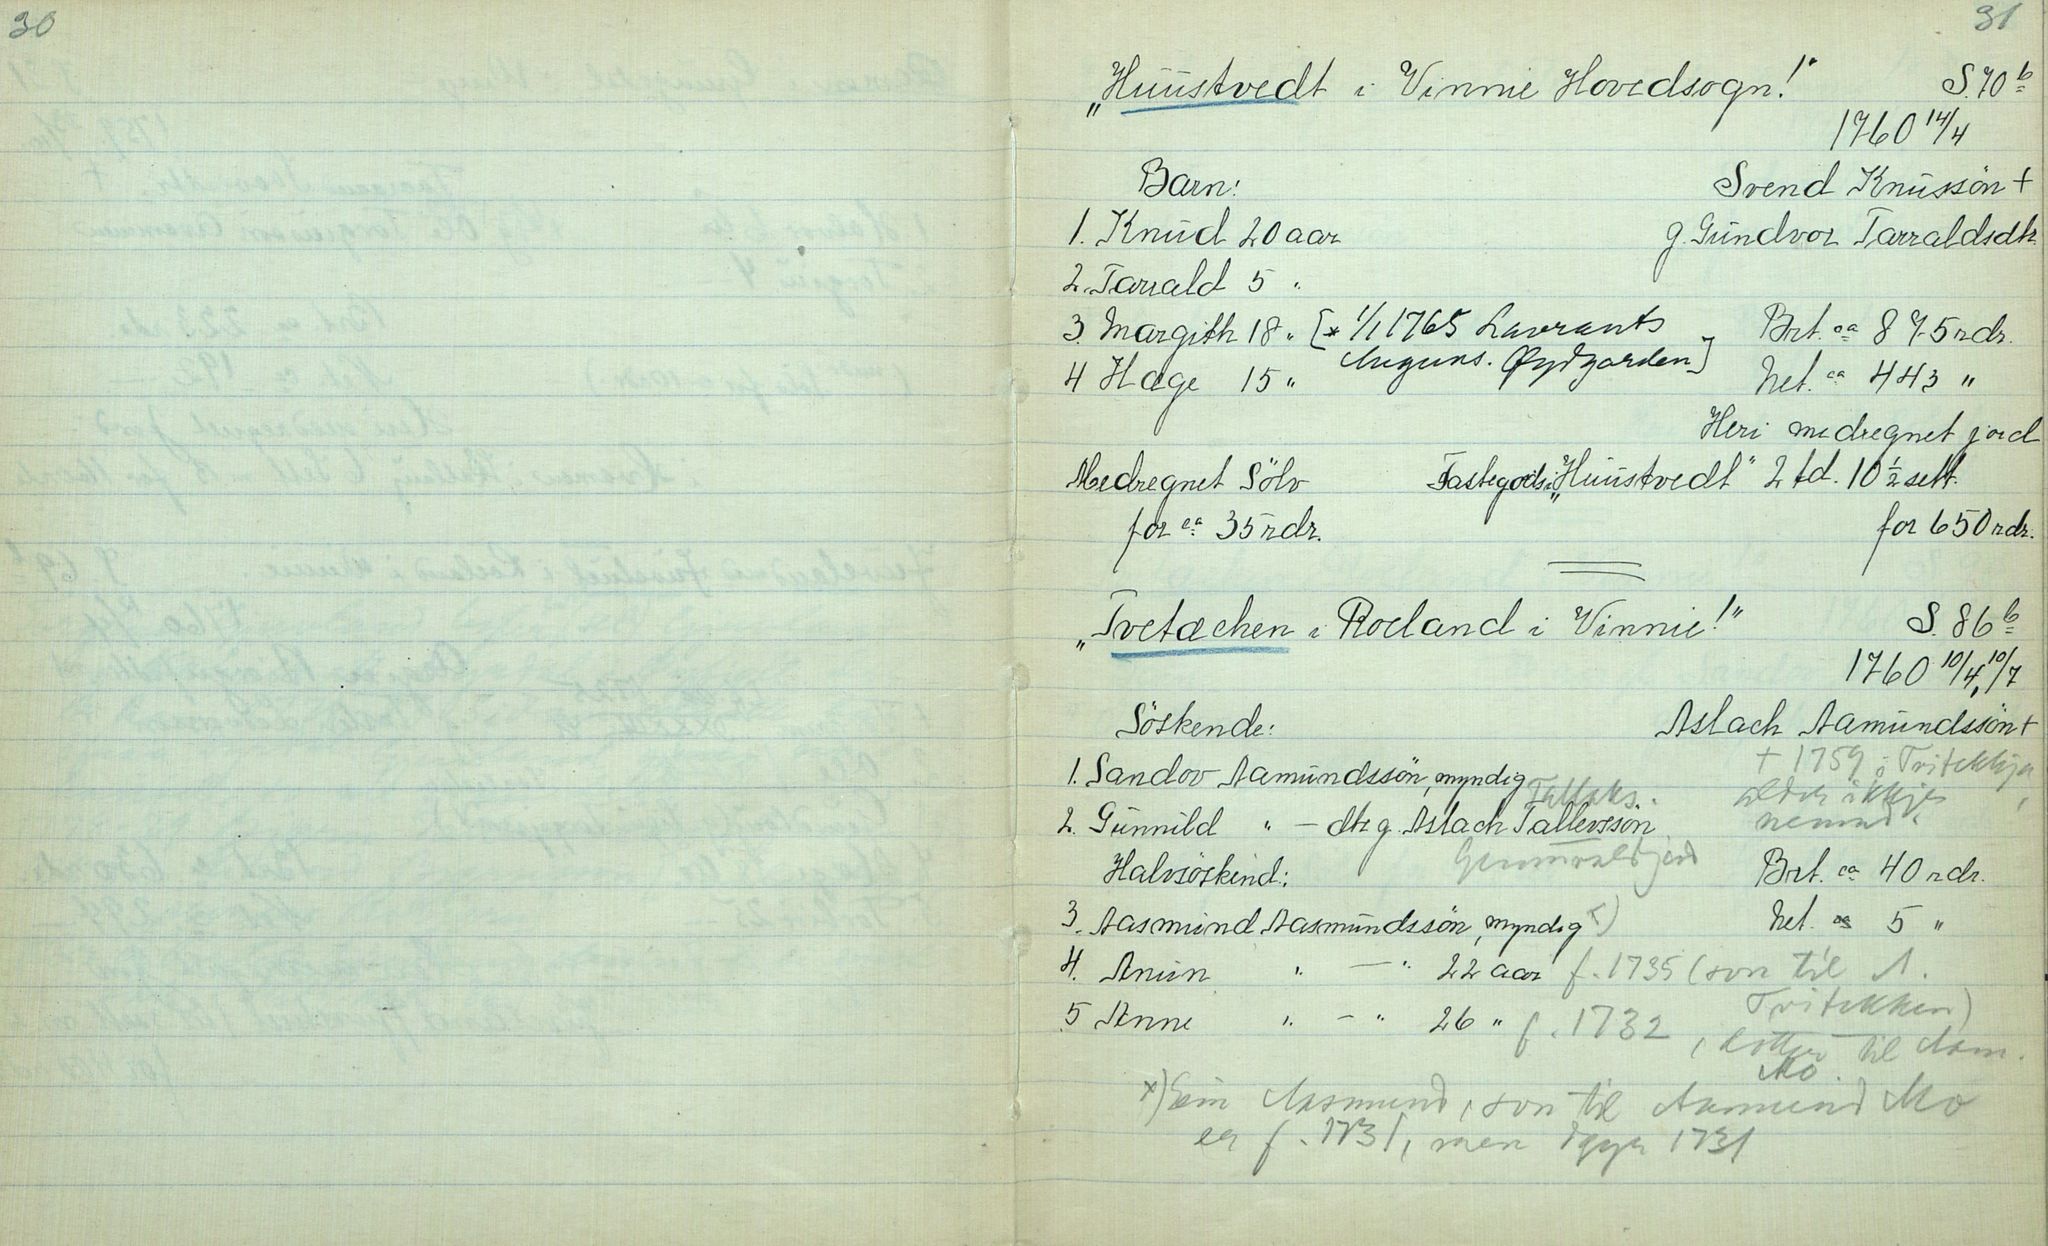 30
31
„Huustvedt i Vinnie Hovedsogn!" S. 70 b
1760 14/4
Barn: Svend Knussön +
1. Knud 20 aar g. Gundvor Tarraldsdtr.
2. Tarrald 5 "
3. Margith 18 " [* 1/1 1765 Lavrants Brt. ca 875 rdr.
Auguns. Øydgarden]
4 Hage 15 " Net. ca 443 "
Heri medregnet jord
Medregnet Sölv Fastegods i „Huustvedt" 2 td. 10 1/2 sett.
for ca 35 rdr. for 650 rdr.
„Tvetæchen i Roeland i Vinnie!" S. 86 b
1760 10/4, 10/7
Söskende: Aslach Aamundssön +
+ 1759 i Tvitekkja,
1. Sandov Aamundssön, myndig
Tallaks. alder ikkje
2. Gunnild " — dtr g. Aslach Tallevssön nemnd.
Halvsöskind: Brt. ca 40 rdr.
3. Aasmund Aasmundssön, myndig x) Net. ca 5 "
4. Anun " — " 22 aar f. 1735 (son til A.
Tvitekken)
5 Anne " — " 26 " f. 1732, dotter til Aam.
Mo.
x) Ein Aasmund, son til Aamund Mo
er f. 1731, men 1731